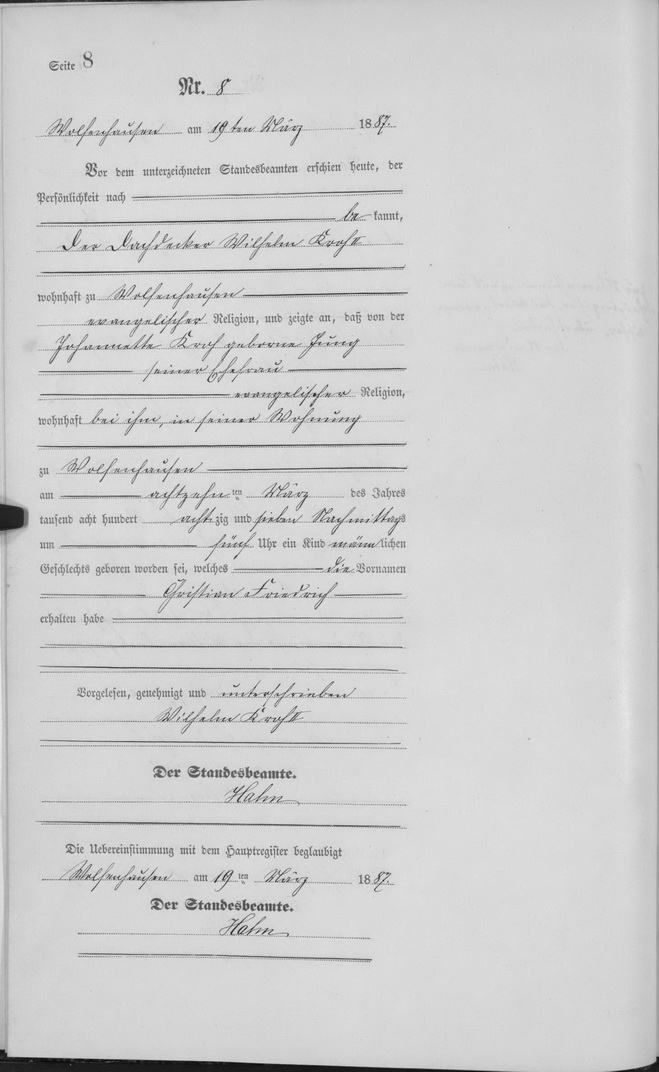 Seite 8
Nr. 8
Wolfenhausen am 19ten März 1887.
Vor dem unterzeichneten Standesbeamten erschien heute, der
Persönlichkeit nach
bekannt,
der Dachdecker Wilhelm Kroh II
wohnhaft zu Wolfenhausen
evangelischer Religion, und zeigte an, daß von der
Johannette Kroh geborne Jung
seiner Ehefrau
evangelischer Religion,
wohnhaft bei ihm, in seiner Wohnung
zu Wolfenhausen
am achtzehnten März des Jahres
tausend acht hundert achtzig und sieben Nachmittags
um fünf Uhr ein Kind männlichen
Geschlechts geboren worden sei, welches die Vornamen
Christian Friedrich
erhalten habe
Vorgelesen, genehmigt und unterschrieben
Wilhelm Kroh II
Der Standesbeamte.
Hahn
Die Uebereinstimmung mit dem Hauptregister beglaubigt
Wolfenhausen am 19ten März 1887.
Der Standesbeamte.
Hahn